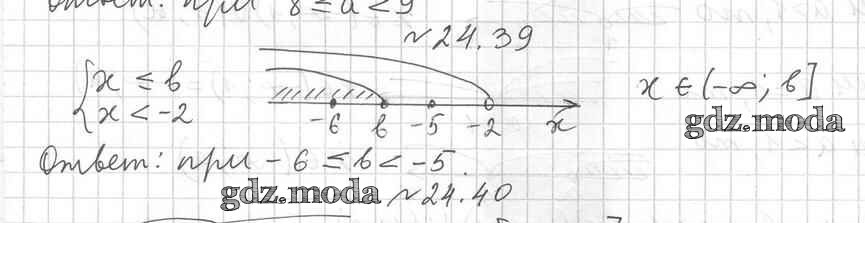 Ответ: при 8 ≤ a < 9
№24.39
{ x ≤ b
x < -2
-6 b -5 -2 x
x ∈ (-∞; b]
gdz.moda
Ответ: при -6 ≤ b < -5.
gdz.moda
№24.40